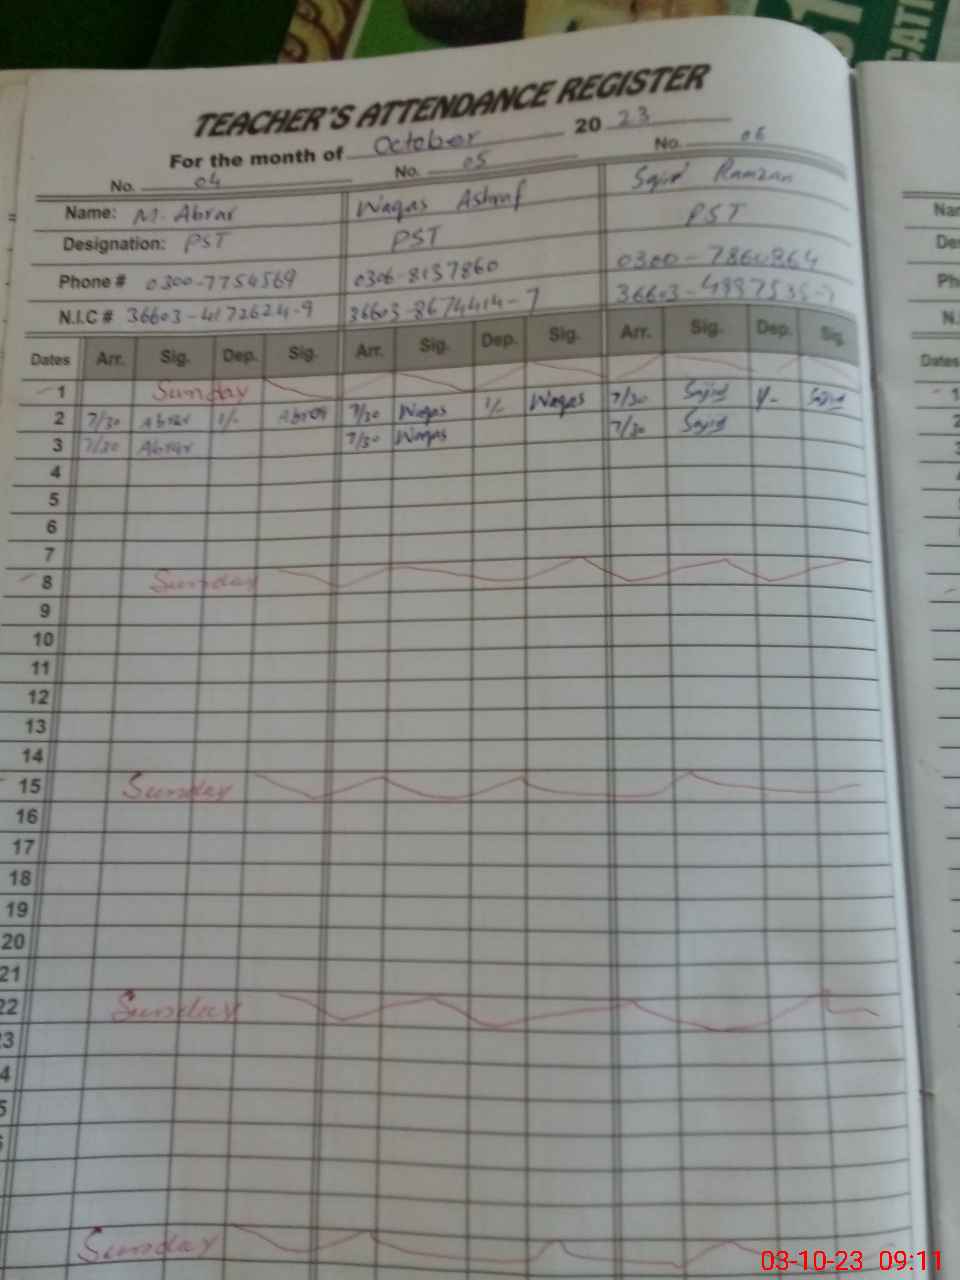 CATI
TEACHER'S ATTENDANCE REGISTER
For the month of October 20 23
No. 04 No. 05 No. 06
Name: M. Abrar Waqas Ashraf Sajid Ramzan
Designation: PST PST PST
Phone # 0300-7754569 0306-8137860
N.I.C # 36603-4172624-9 36603-8674414-7
Dates Arr. Sig. Dep. Sig. Arr. Sig. Dep. Sig. Arr. Sig. Dep. Sig.
1 Sunday
2 7/30 Abrar 1/- Abrar 7/30 Waqas 1/- Waqas 7/30 Sajid 1/- Sajid
3 7/30 Abrar 7/30 Waqas 7/30 Sajid
4
5
6
7
8 Sunday
9
10
11
12
13
14
15 Sunday
16
17
18
19
20
21
22 Sunday
3
4
5
Sunday
Nar
De
Ph
N.
Dates
1
2
03-10-23 09:11